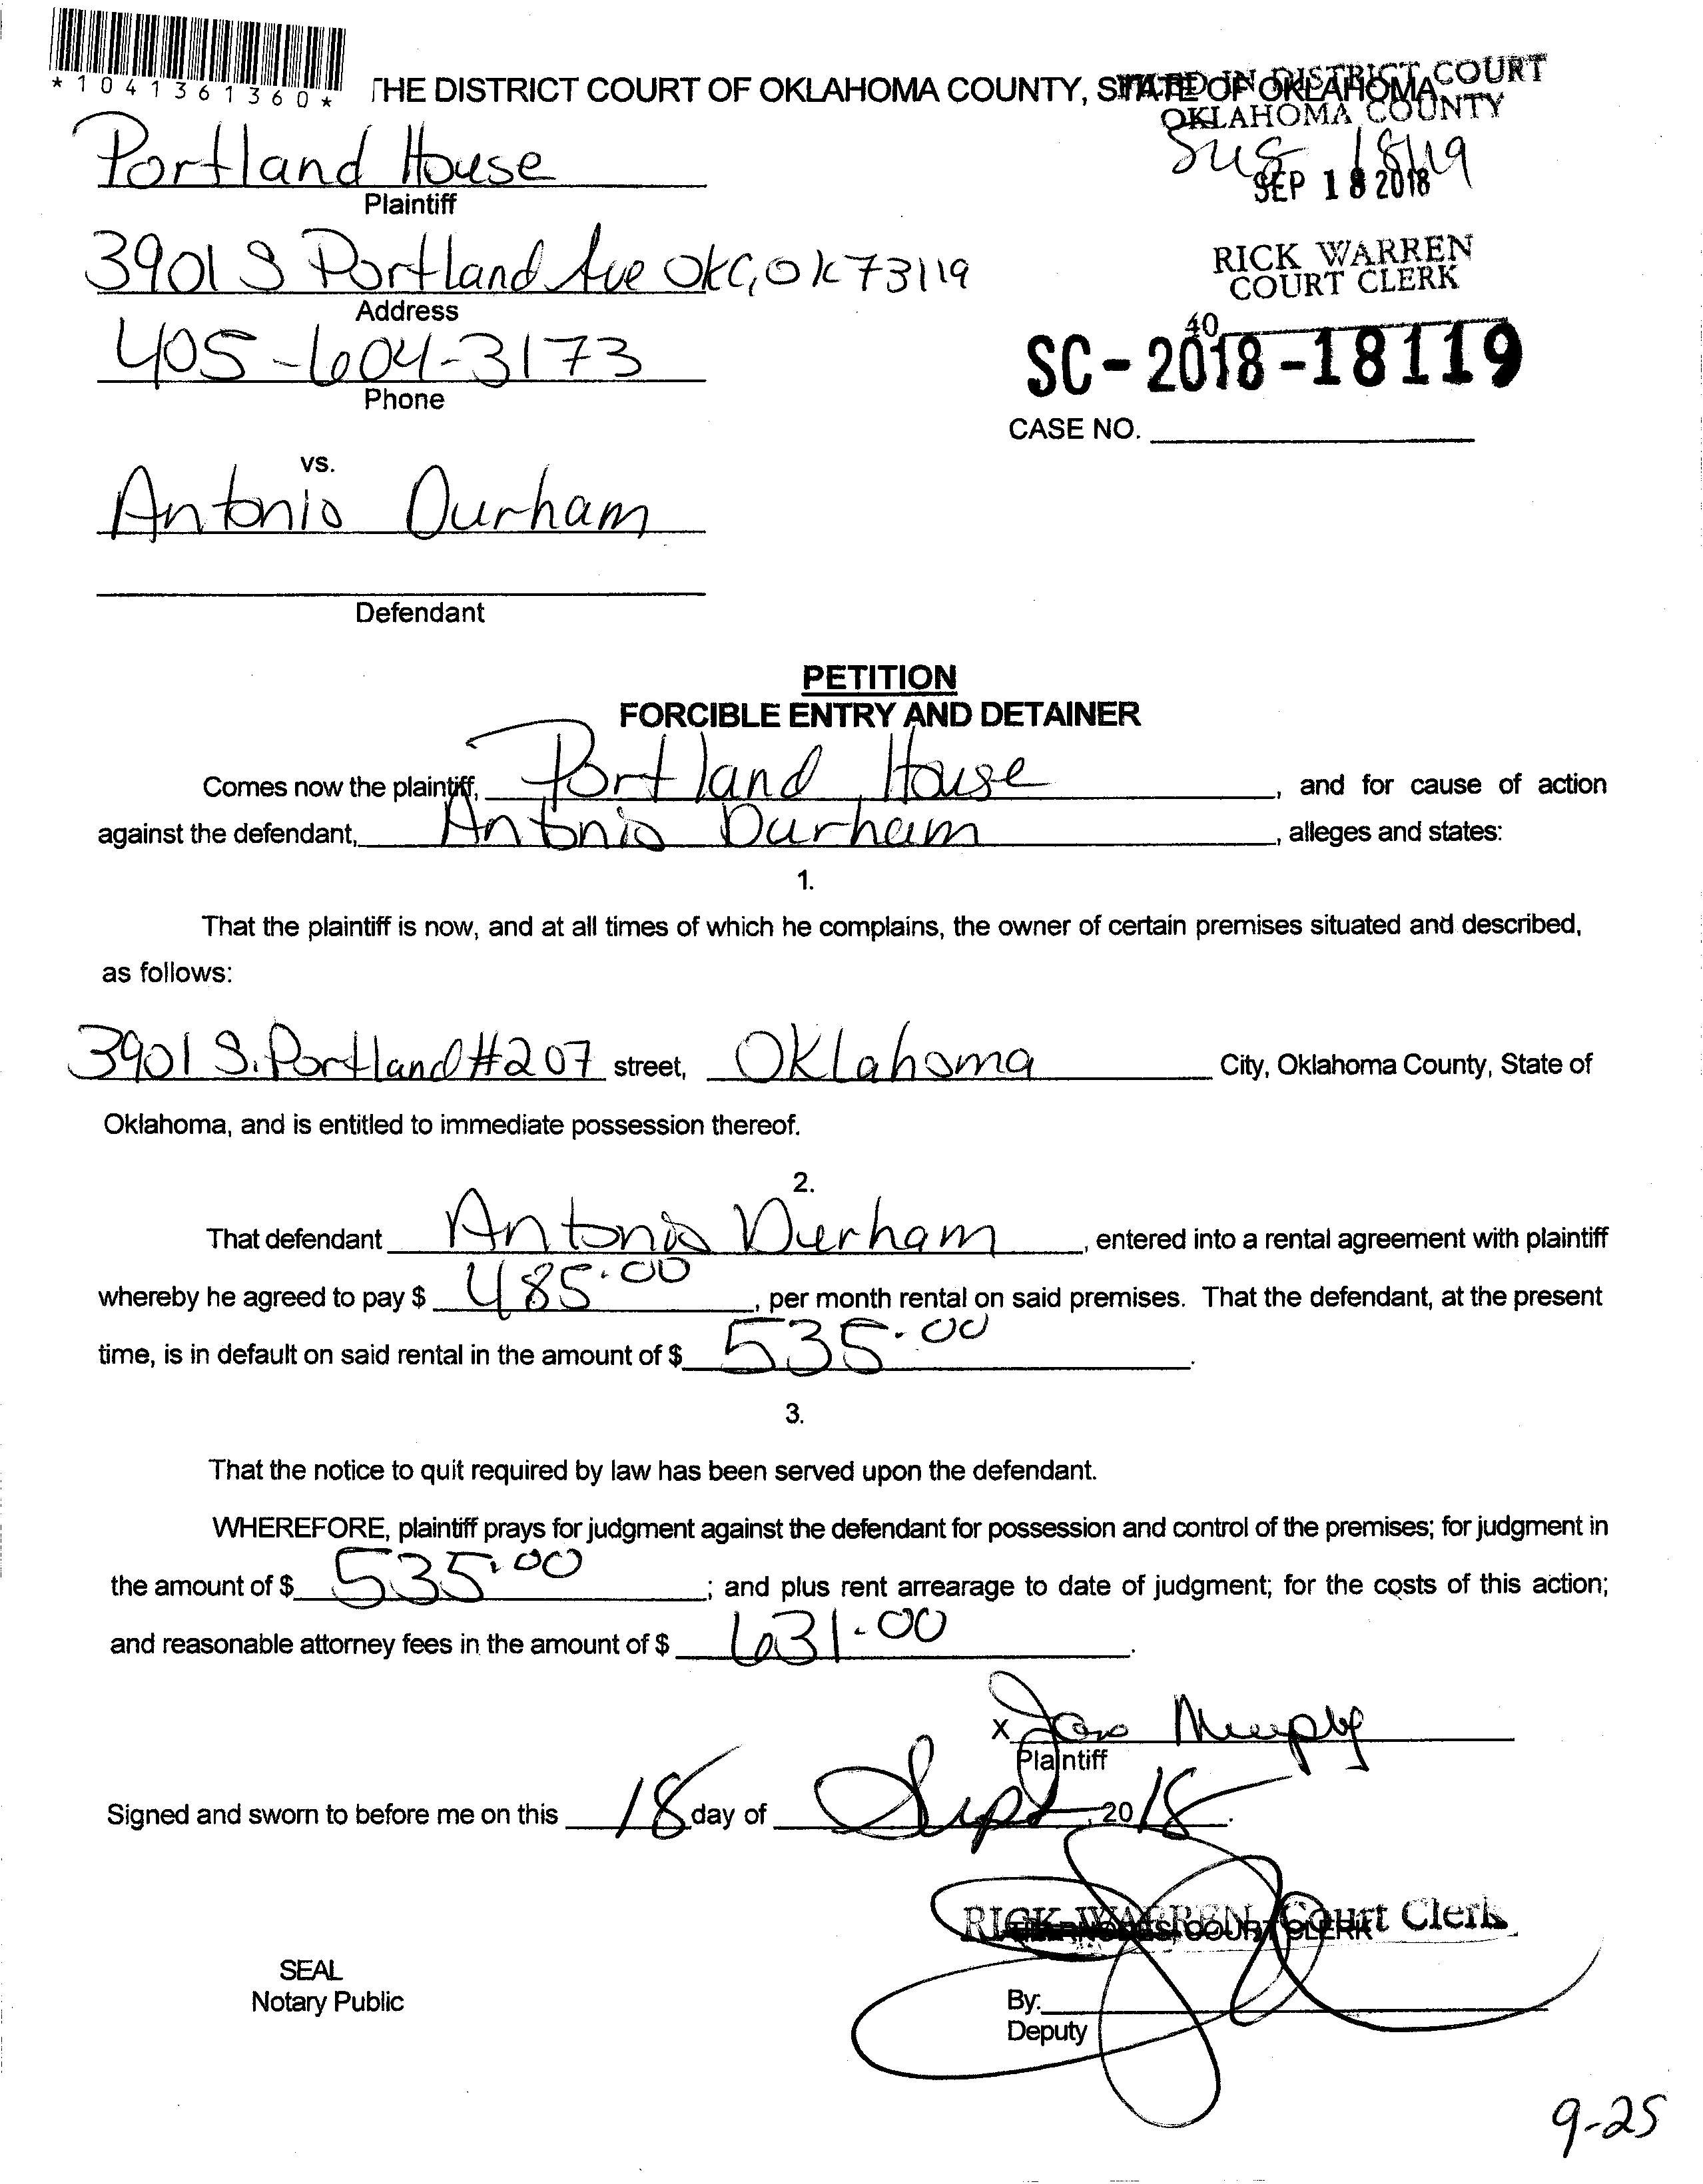 *1041361360*
THE DISTRICT COURT OF OKLAHOMA COUNTY, STATE OF OKLAHOMA
FILED IN DISTRICT COURT
OKLAHOMA COUNTY
Portland House
Plaintiff
SEP 18 2018
3901 S Portland Ave OKC, OK 73119
Address
RICK WARREN
COURT CLERK
405-604-3173
Phone
40
SC-2018-18119
CASE NO.
vs.
Antonio Durham
Defendant
PETITION
FORCIBLE ENTRY AND DETAINER
Comes now the plaintiff, Portland House, and for cause of action
against the defendant, Antonio Durham, alleges and states:
1.
That the plaintiff is now, and at all times of which he complains, the owner of certain premises situated and described,
as follows:
3901 S. Portland #207 street, Oklahoma City, Oklahoma County, State of
Oklahoma, and is entitled to immediate possession thereof.
2.
That defendant Antonio Durham, entered into a rental agreement with plaintiff
whereby he agreed to pay $ 485.00, per month rental on said premises. That the defendant, at the present
time, is in default on said rental in the amount of $ 535.00.
3.
That the notice to quit required by law has been served upon the defendant.
WHEREFORE, plaintiff prays for judgment against the defendant for possession and control of the premises; for judgment in
the amount of $ 535.00; and plus rent arrearage to date of judgment; for the costs of this action;
and reasonable attorney fees in the amount of $ 631.00.
x Murphy
Plaintiff
Signed and sworn to before me on this 18 day of Sept, 2018.
RICK WARREN, Court Clerk
COURT CLERK
SEAL
Notary Public
By:
Deputy
9-25